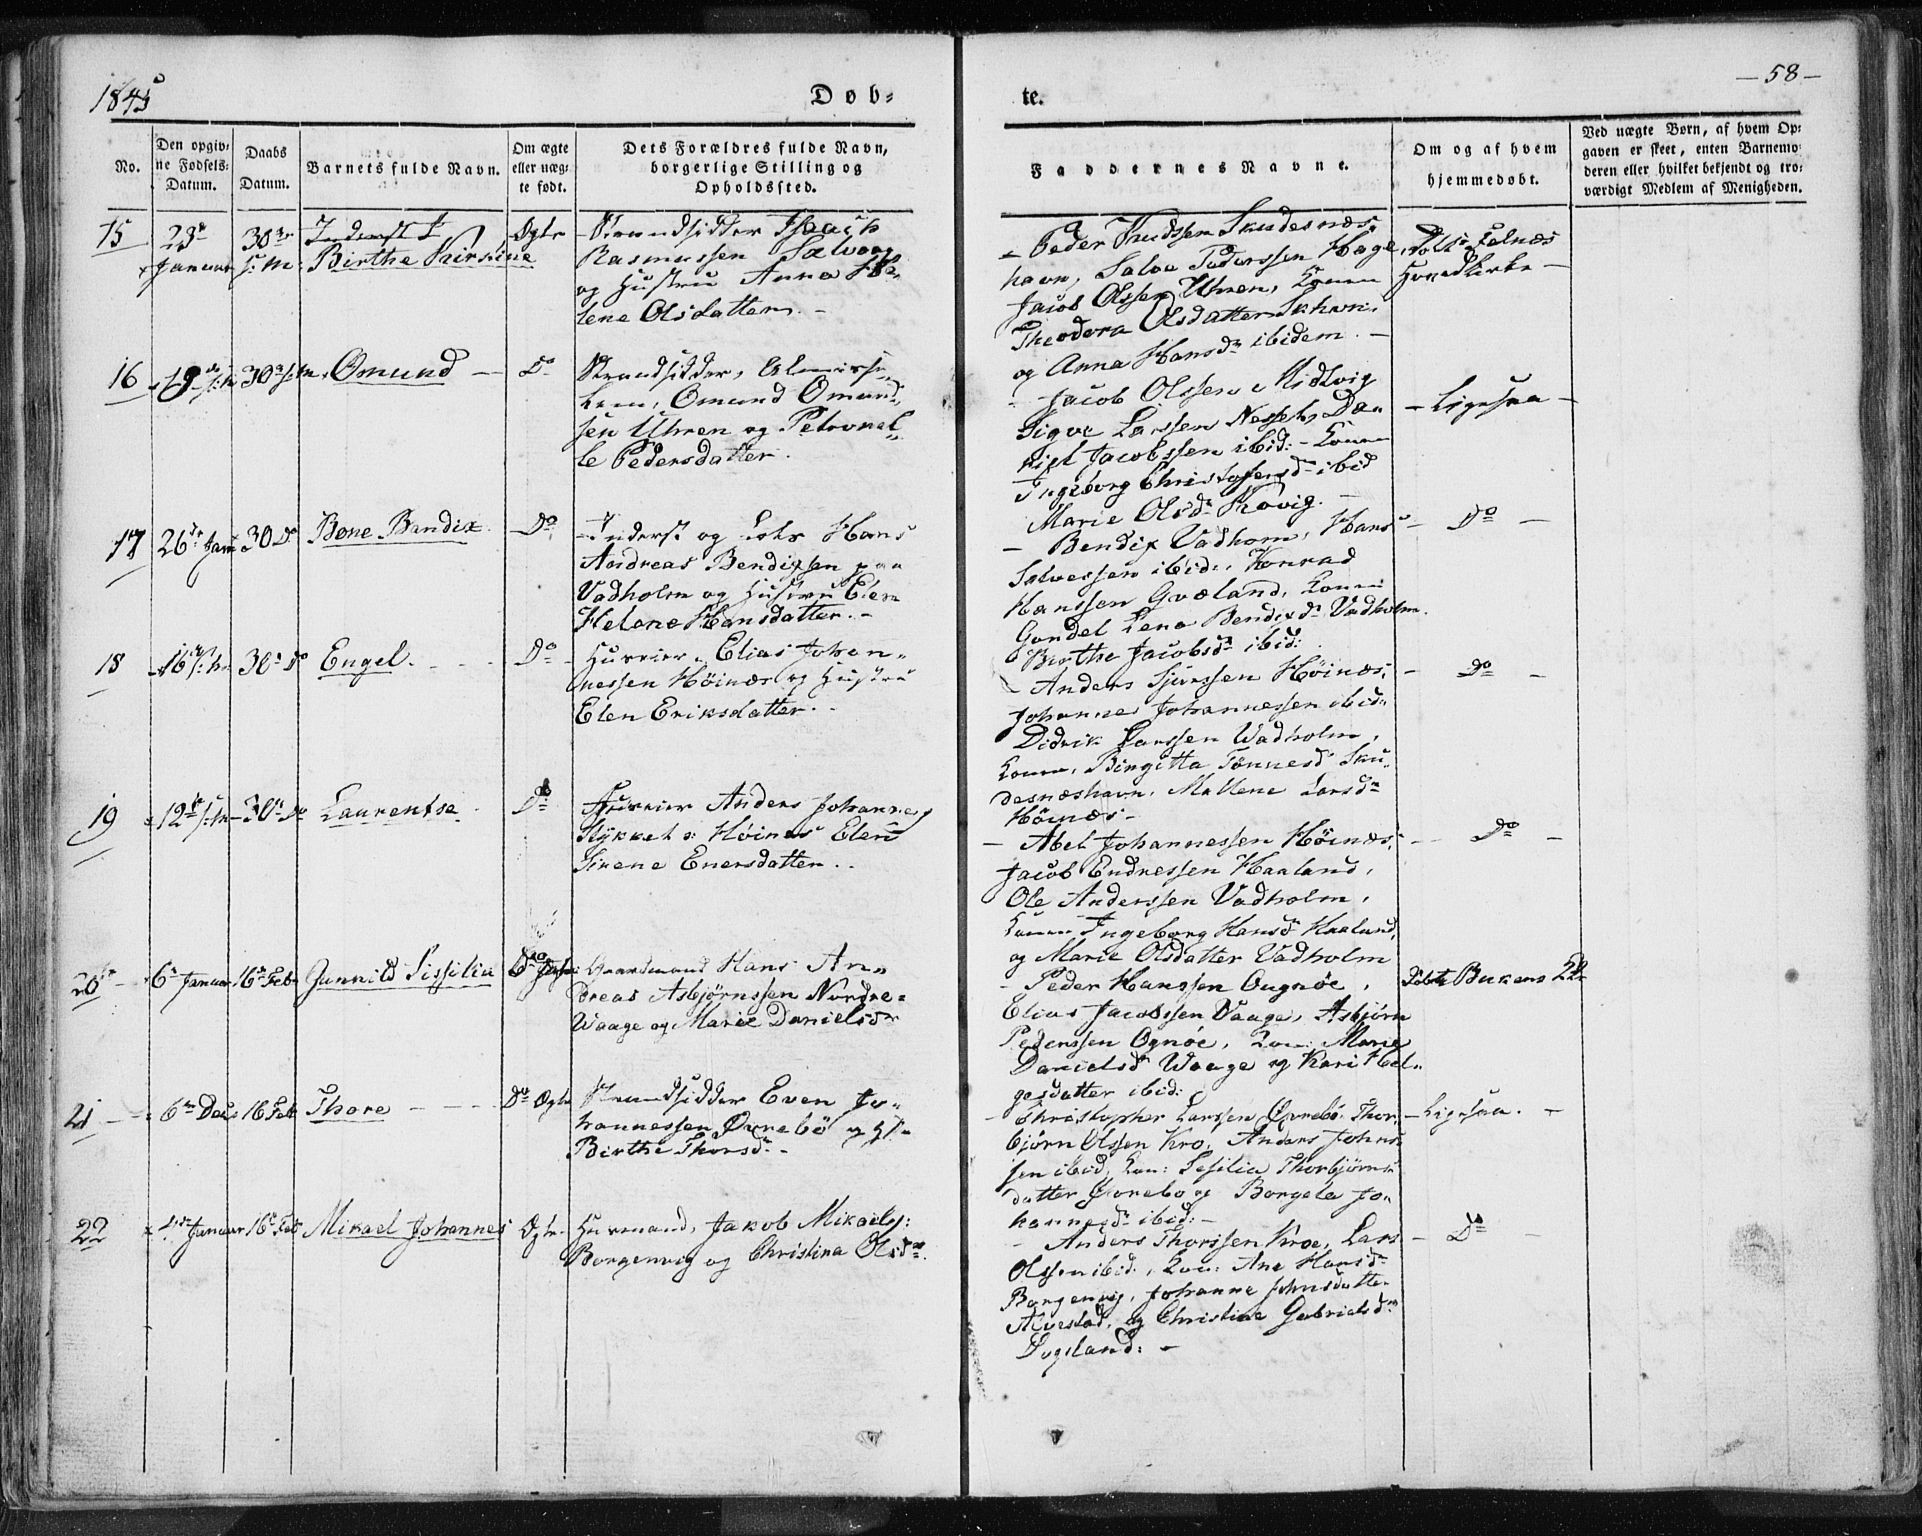 1845
Døb-
te.
— 58 —
No.
Den opgiv-
ne Fødsels-
Datum.
Daabs
Datum.
Barnets fulde Navn.
Om ægte
eller uæg-
te født.
Dets Forældres fulde Navn,
borgerlige Stilling og
Opholdssted.
Faddernes Navne.
Om og af hvem
hjemmedøbt.
Ved uægte Børn, af hvem Op-
gaven er skeet, enten Barnemo-
deren eller hvilket bekjendt og tro-
værdigt Medlem af Menigheden.
15
23de
Januar
30te
s: M:
Birthe Kirstine
Ægte
Strandsidder Isach
Rasmussen Salvøog
og Hustru Anna He-
lene Olsdatter. -
- Peder Knudssen Skudesnæs-
havn, Salve Pederssen Hage,
Jacob Olssen Uhren, Konen
Theodora Olsdatter Skhavn:
og Anna Hansdr ibidem. -
Falnæs
Hovedkirke -
16
19de s: M
30te s: M
Omund
Do
Strandsidder, Almisse-
lem, Omund Omund-
sen Uhren og Petronel-
le Pedersdatter.
- Jacob Olssen Midtvig
Sigve Larssen Nesset, Da-
niel Jacobssen ibid: - Konen
Ingeborg Christofersdr ibid
Marie Olsdr Kovig. -
- Ligesaa -
17
26de Janu
30 Do
Bone Bendix.
Do
Inderst og Lods Hans
Andreas Bendixsen paa
Vadholm og Hustru Elen
Helene Hansdatter. -
- Bendix Vadhom, Hans
Salvessen ibid:, Konrad
Hanssen Gvæland, Konen
Gundel Lena Bendixdr Vadholm.
Birthe Jacobsdr ibid:
- Do -
18
16de s: M
30te Do
Engel.
Do
Huusier, Elias Johan-
nessen Høinæs og Hustru
Elen Eriksdatter. -
- Anders Sjurssen Høinæs,
Johannes Johannessen ibid:
Didrik Larssen Wadholm,
Konen, Birgitta Tønnesd Sku-
desnæshavn, Mallene Larsdr
Høinæs -
- Do -
19
12te s: M
30te Do
Laurentse
Do
Huusier Anders Johannes
Stykket o: Høinæs Elen
Sirene Enersdatter. .
- Abel Johannessen Høinæs,
Jacob Endressen Haaland,
Ole Anderssen Vadholm,
Konen Ingeborg Hansd Haaland,
og Marie Olsdatter Vadholm
- Do -
20
6te Januar
16de Feb
Gunnild Sissilia
Gaardmand Hans An-
dreas Asbjørnssen Nordre-
Waage og Marie Danielsdr
- Peder Hanssen Ougnøe,
Elias Jacobssen Vaage, Asbjørn
Pederssen Ognøe, Kon: Marie
Danielsd Waage og Kari Hel-
gesdatter ibid:
Døbt i Bukens
21
6te Decbr
16 Feb
Thore
Do Ægte
Strandsidder Even Jo-
hannessen Øvrebø og H.
Birthe Thorsdr -
- Christopher Larssen Øvrebø, Thor-
bjørn Olssen Kro, Anders Johns-
sen ibid, Kon: Sesilia Thorbjørns-
datter Øvrebø og Borgela Jo-
hannesdr ibid: -
- Ligesaa. -
22
4de Januar
16de Feb
Mikael Johannes
Ægte
Huusmand, Jakob Mikaels:
Borgenvig og Christina Olsdr.
- Anders Thorssen Kroe, Lars
Olssen ibid:, Kon: Ane Hansdr
Borgenvig, Johanne Johnsdatter
Alvestad, og Christine Gabrielsdr
Dugeland: -
- Do -